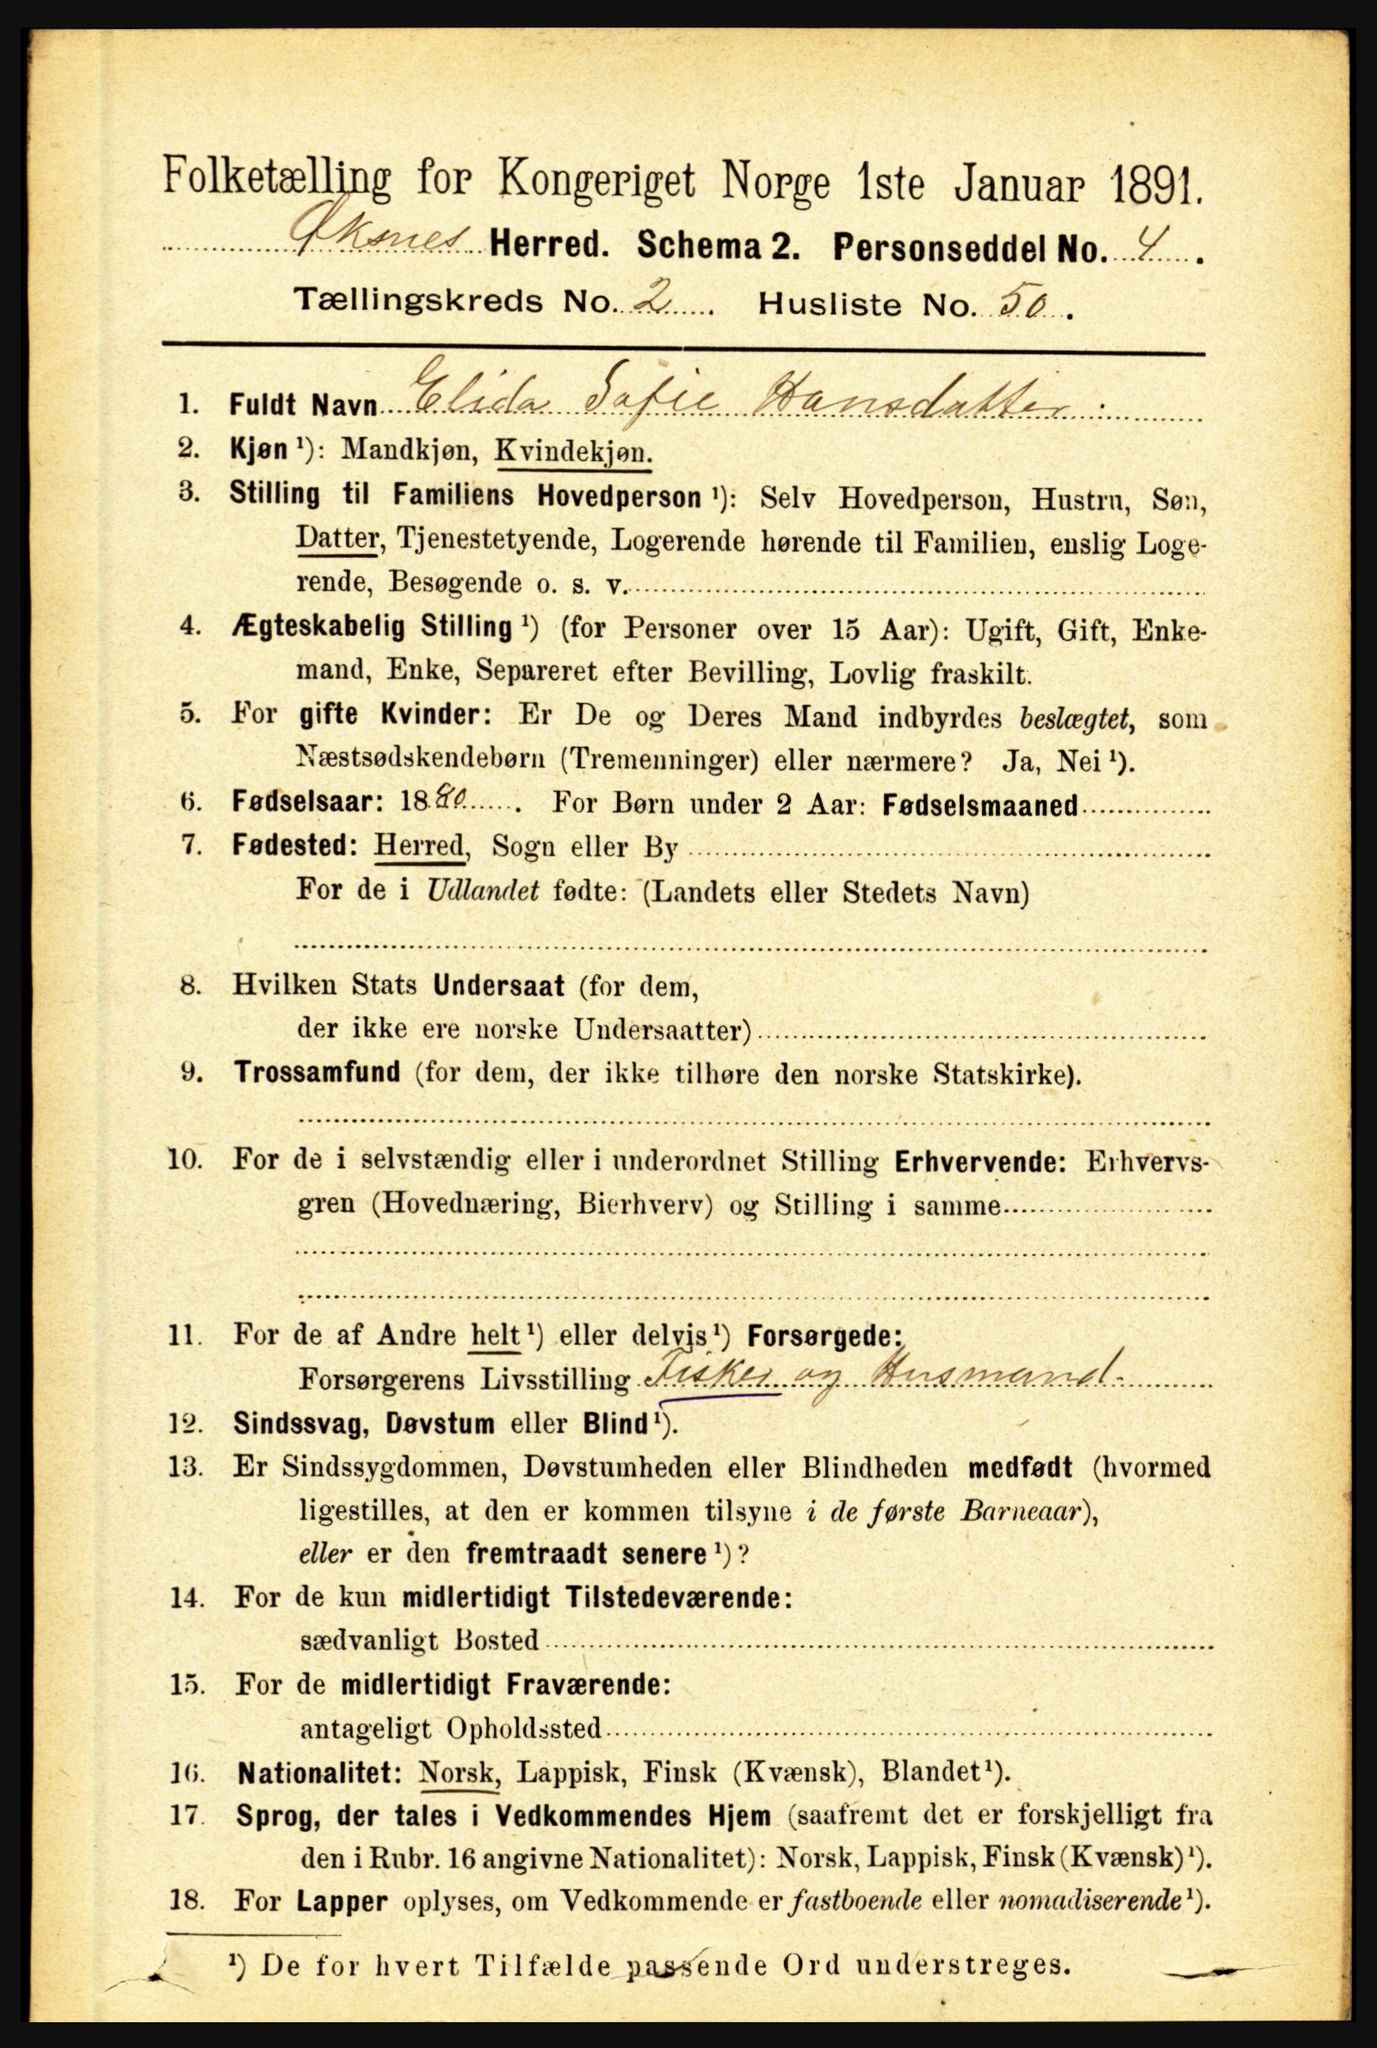 Folketælling for Kongeriget Norge 1ste Januar 1891.
Øksnes Herred. Schema 2. Personseddel No. 4.
Tællingskreds No. 2. Husliste No. 50.
1. Fuldt Navn Elida Sofie Hansdatter.
2. Kjøn ¹): Mandkjøn, Kvindekjøn.
3. Stilling til Familiens Hovedperson ¹): Selv Hovedperson, Hustru, Søn,
Datter, Tjenestetyende, Logerende hørende til Familien, enslig Loge-
rende, Besøgende o. s. v.
4. Ægteskabelig Stilling ¹) (for Personer over 15 Aar): Ugift, Gift, Enke-
mand, Enke, Separeret efter Bevilling, Lovlig fraskilt.
5. For gifte Kvinder: Er De og Deres Mand indbyrdes beslægtet, som
Næstsødskendebørn (Tremenninger) eller nærmere? Ja, Nei ¹).
6. Fødselsaar: 1880. For Børn under 2 Aar: Fødselsmaaned
7. Fødested: Herred, Sogn eller By
For de i Udlandet fødte: (Landets eller Stedets Navn)
8. Hvilken Stats Undersaat (for dem,
der ikke ere norske Undersaatter)
9. Trossamfund (for dem, der ikke tilhøre den norske Statskirke).
10. For de i selvstændig eller i underordnet Stilling Erhvervende: Erhvervs-
gren (Hovednæring, Bierhverv) og Stilling i samme
11. For de af Andre helt ¹) eller delvis ¹) Forsørgede:
Forsørgerens Livsstilling Fisker og Husmand.
12. Sindssvag, Døvstum eller Blind ¹).
13. Er Sindssygdommen, Døvstumheden eller Blindheden medfødt (hvormed
ligestilles, at den er kommen tilsyne i de første Barneaar),
eller er den fremtraadt senere ¹)?
14. For de kun midlertidigt Tilstedeværende:
sædvanligt Bosted
15. For de midlertidigt Fraværende:
antageligt Opholdssted
16. Nationalitet: Norsk, Lappisk, Finsk (Kvænsk), Blandet ¹).
17. Sprog, der tales i Vedkommendes Hjem (saafremt det er forskjelligt fra
den i Rubr. 16 angivne Nationalitet): Norsk, Lappisk, Finsk (Kvænsk) ¹).
18. For Lapper oplyses, om Vedkommende er fastboende eller nomadiserende ¹).
¹) De for hvert Tilfælde passende Ord understreges.